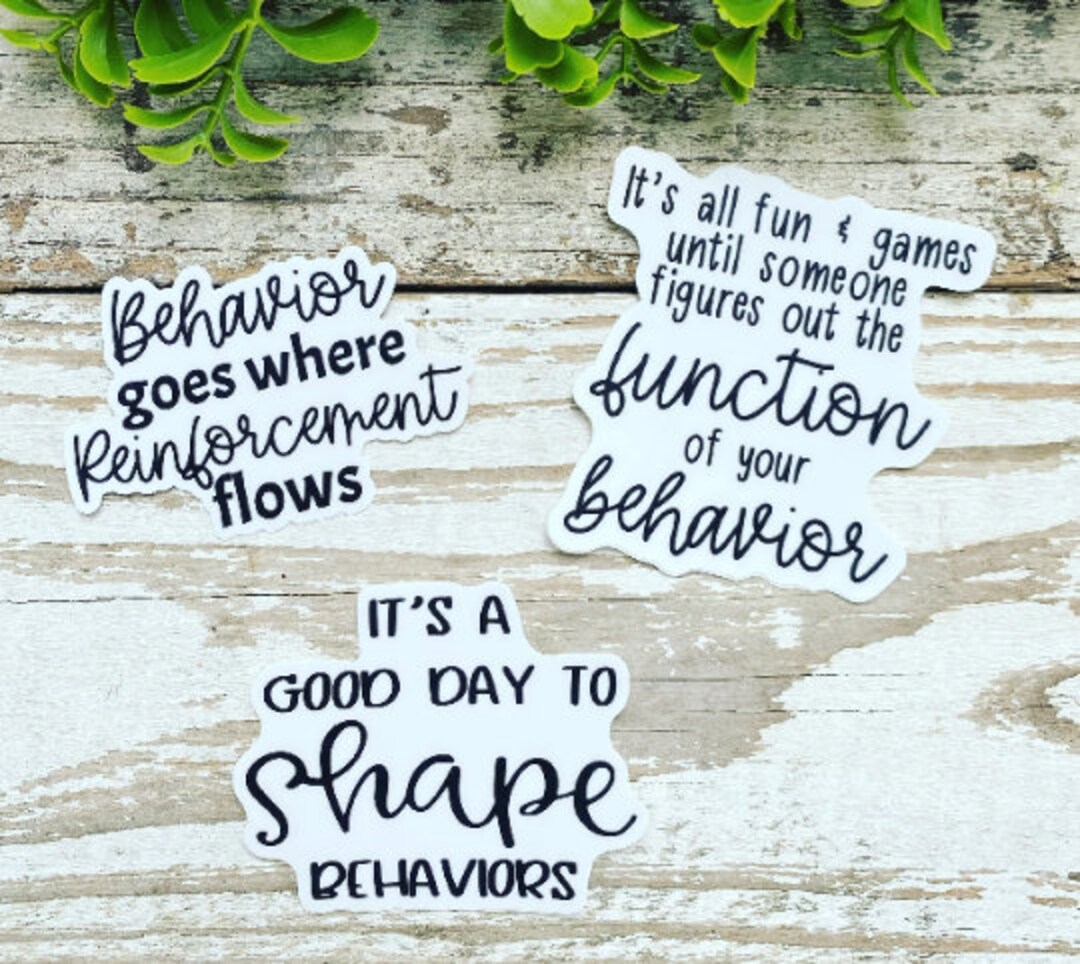 Behavior
goes where
Reinforcement
flows
It's all fun & games
until someone
figures out the
function
of your
behavior
IT'S A
GOOD DAY TO
shape
BEHAVIORS